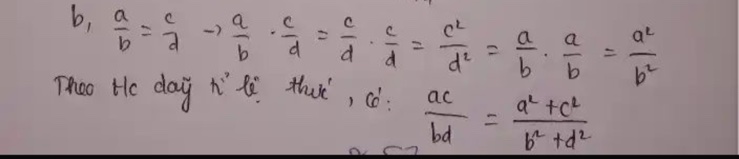 b, a/b = c/d → a/b . c/d = c/d . c/d = c²/d² = a/b . a/b = a²/b²
Theo t/c daỹ tỉ lệ thức, có: ac/bd = a²+c²/b²+d²